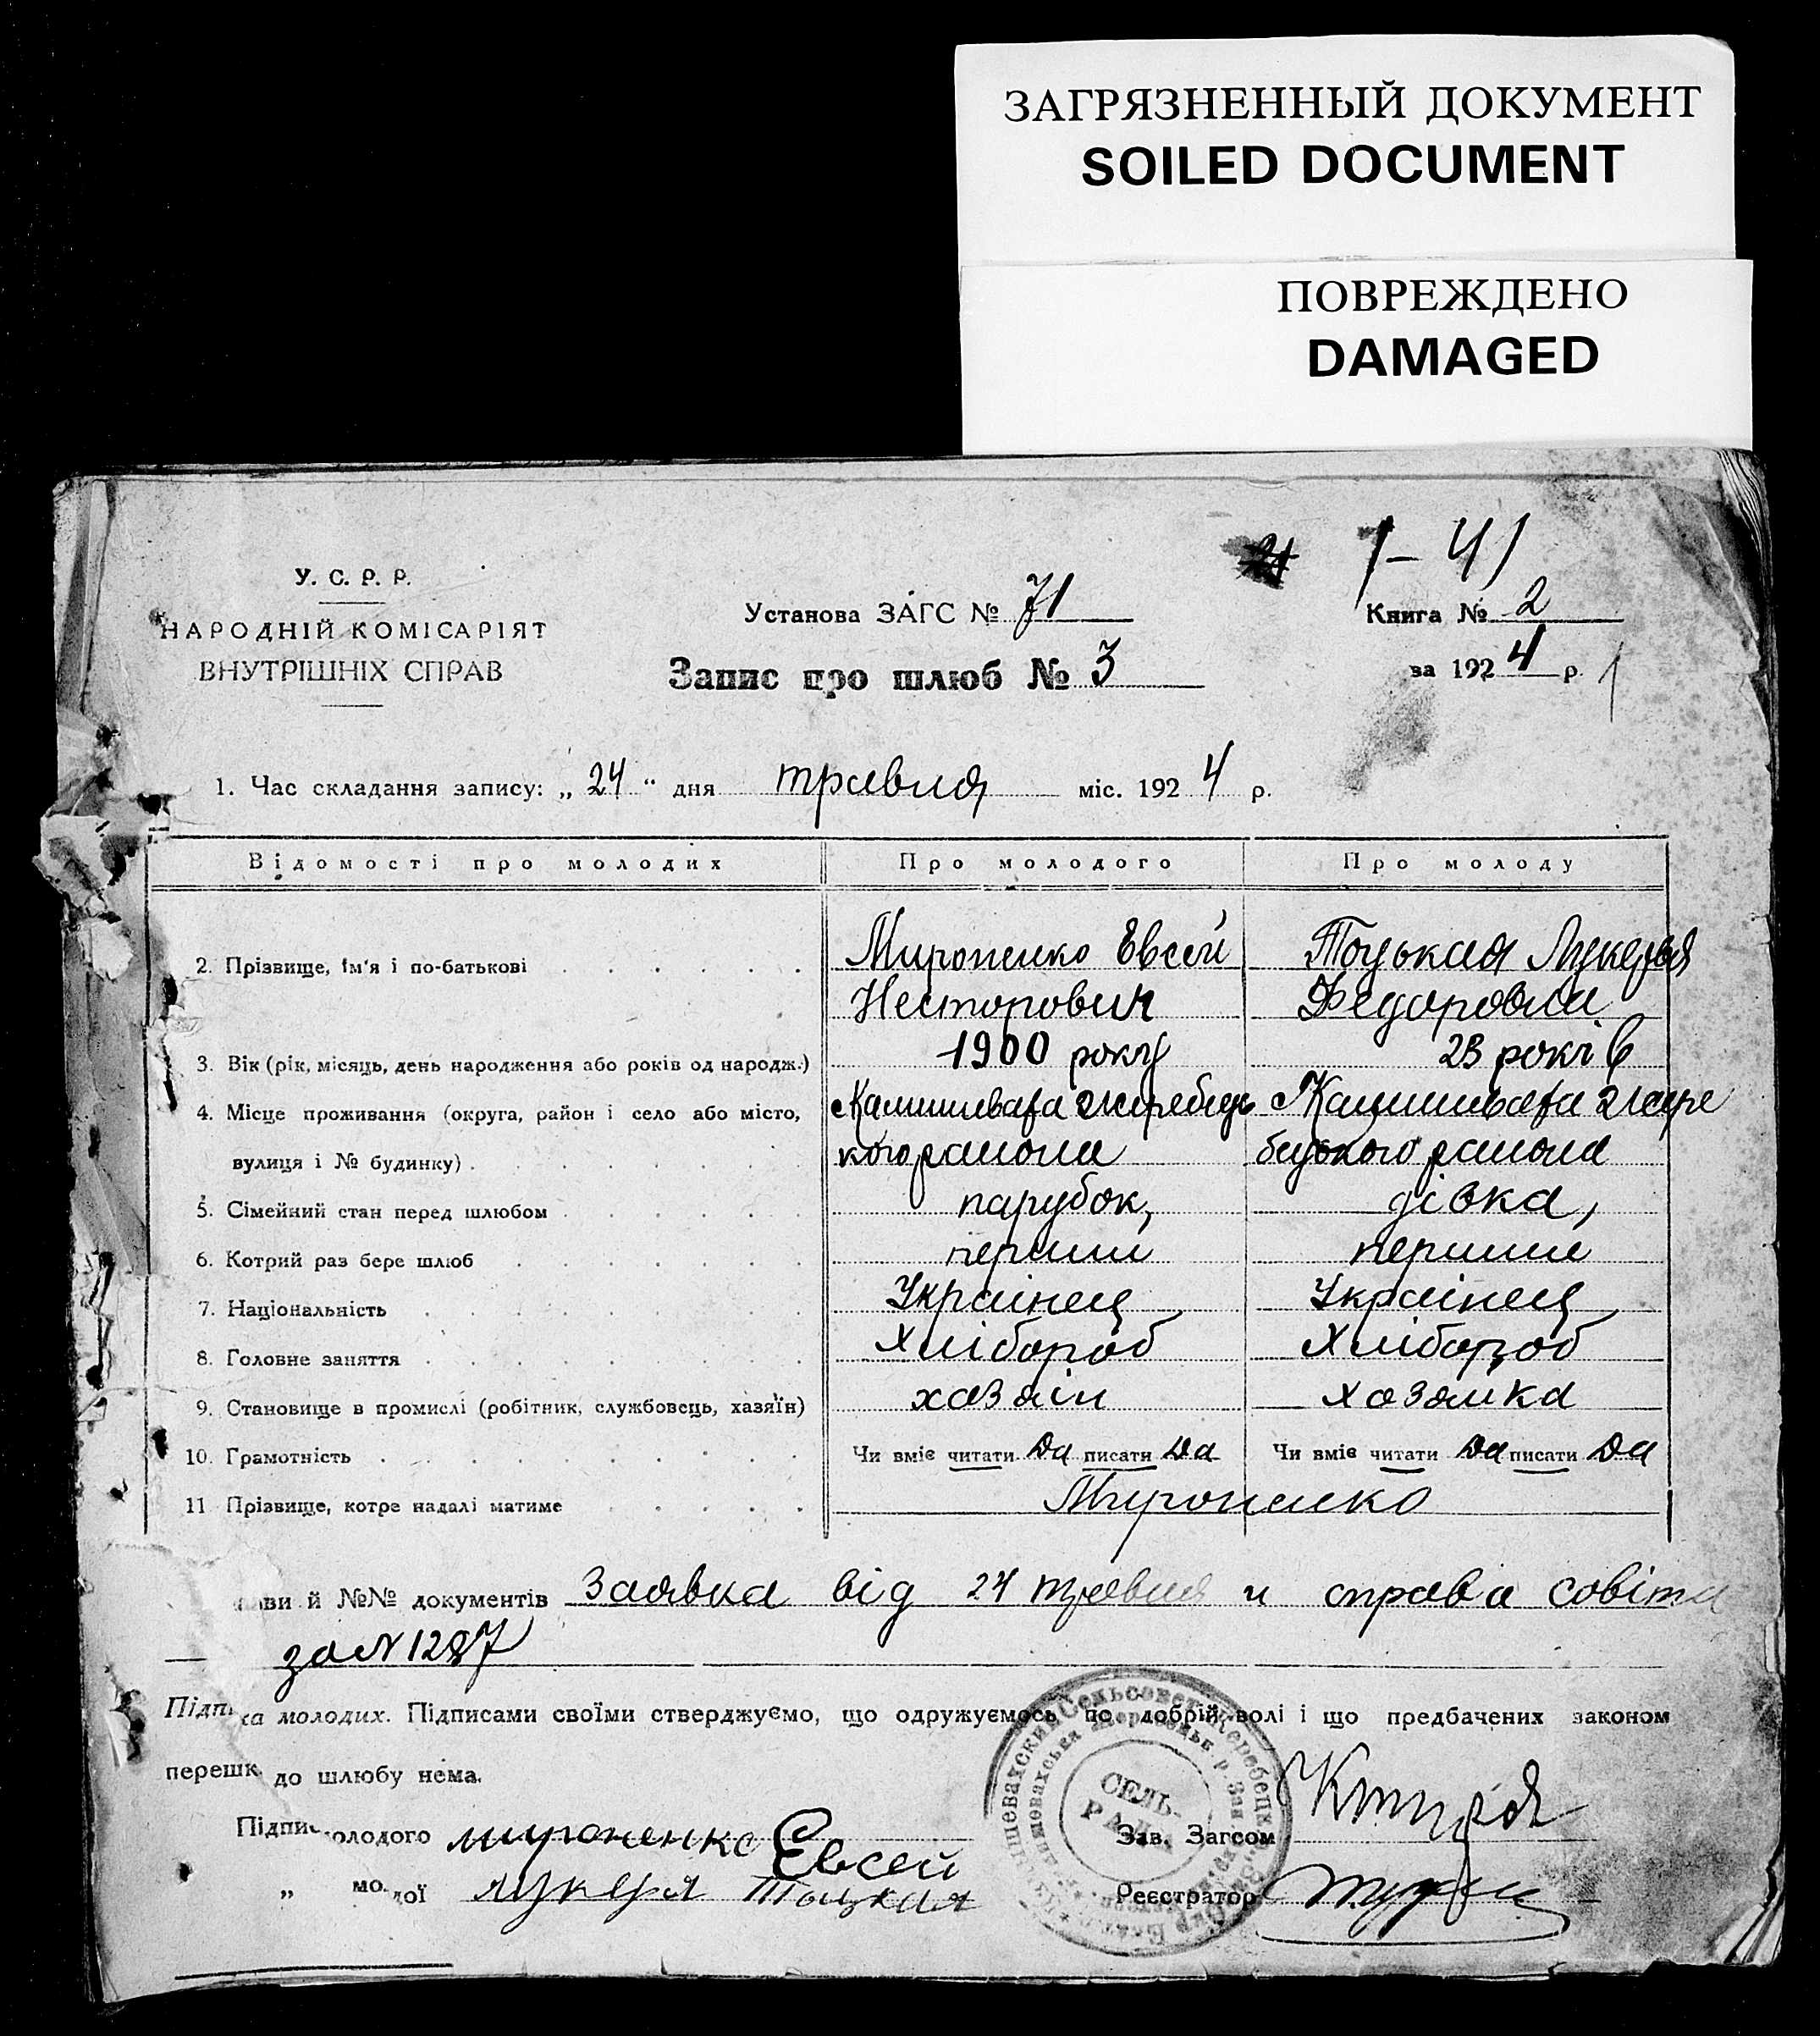 ЗАГРЯЗНЕННЫЙ ДОКУМЕНТ
SOILED DOCUMENT
ПОВРЕЖДЕНО
DAMAGED
1-41
У. С. Р. Р.
НАРОДНІЙ КОМІСАРІЯТ
ВНУТРІШНІХ СПРАВ
Установа ЗАГС № 71
Запис про шлюб № 3
Книга № 2
за 1924 р.
1. Час складання запису: „24“ дня травня міс. 1924 р.
Відомості про молодих Про молодого Про молоду
2. Прізвище, ім'я і по-батькові Мироненко Евсей Тоцькая Лукерья
Несторович Федоровна
3. Вік (рік, місяць, день народження або років од народж.) 1900 року 23 років
4. Місце проживання (округа, район і село або місто, Камишеваха Жеребець Камишеваха Жере
вулиця і № будинку) кого района бецького района
5. Сімейний стан перед шлюбом парубок, дівка,
6. Котрий раз бере шлюб перший перший
7. Національність Українец Українец
8. Головне заняття Хлібороб Хлібороб
9. Становище в промислі (робітник, службовець, хазяїн) хазяін хозяйка
10. Грамотність Чи вміє читати Да писати Да Чи вміє читати Да писати Да
11 Прізвище, котре надалі матиме Мироненко
ви й №№ документів Заявка від 24 травня и справа совіта
за N 1287
Підпи ка молодих. Підписами своїми стверджуємо, що одружуємось по добрій волі і що предбачених законом
перешк до шлюбу нема.
Підпис олодого мироненко Євсей
„ мо дої лукеря Тоцкая
СЕЛЬ-
РАДА
Зав. Загсом
Реєстратор